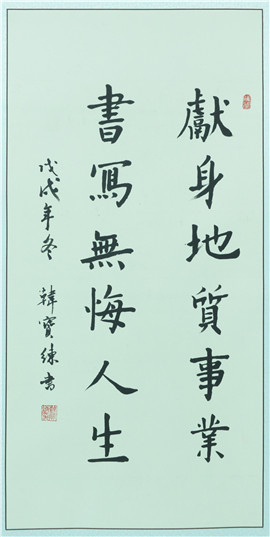 獻身地質事業
書寫無悔人生
戊戌年冬 韓寶練書